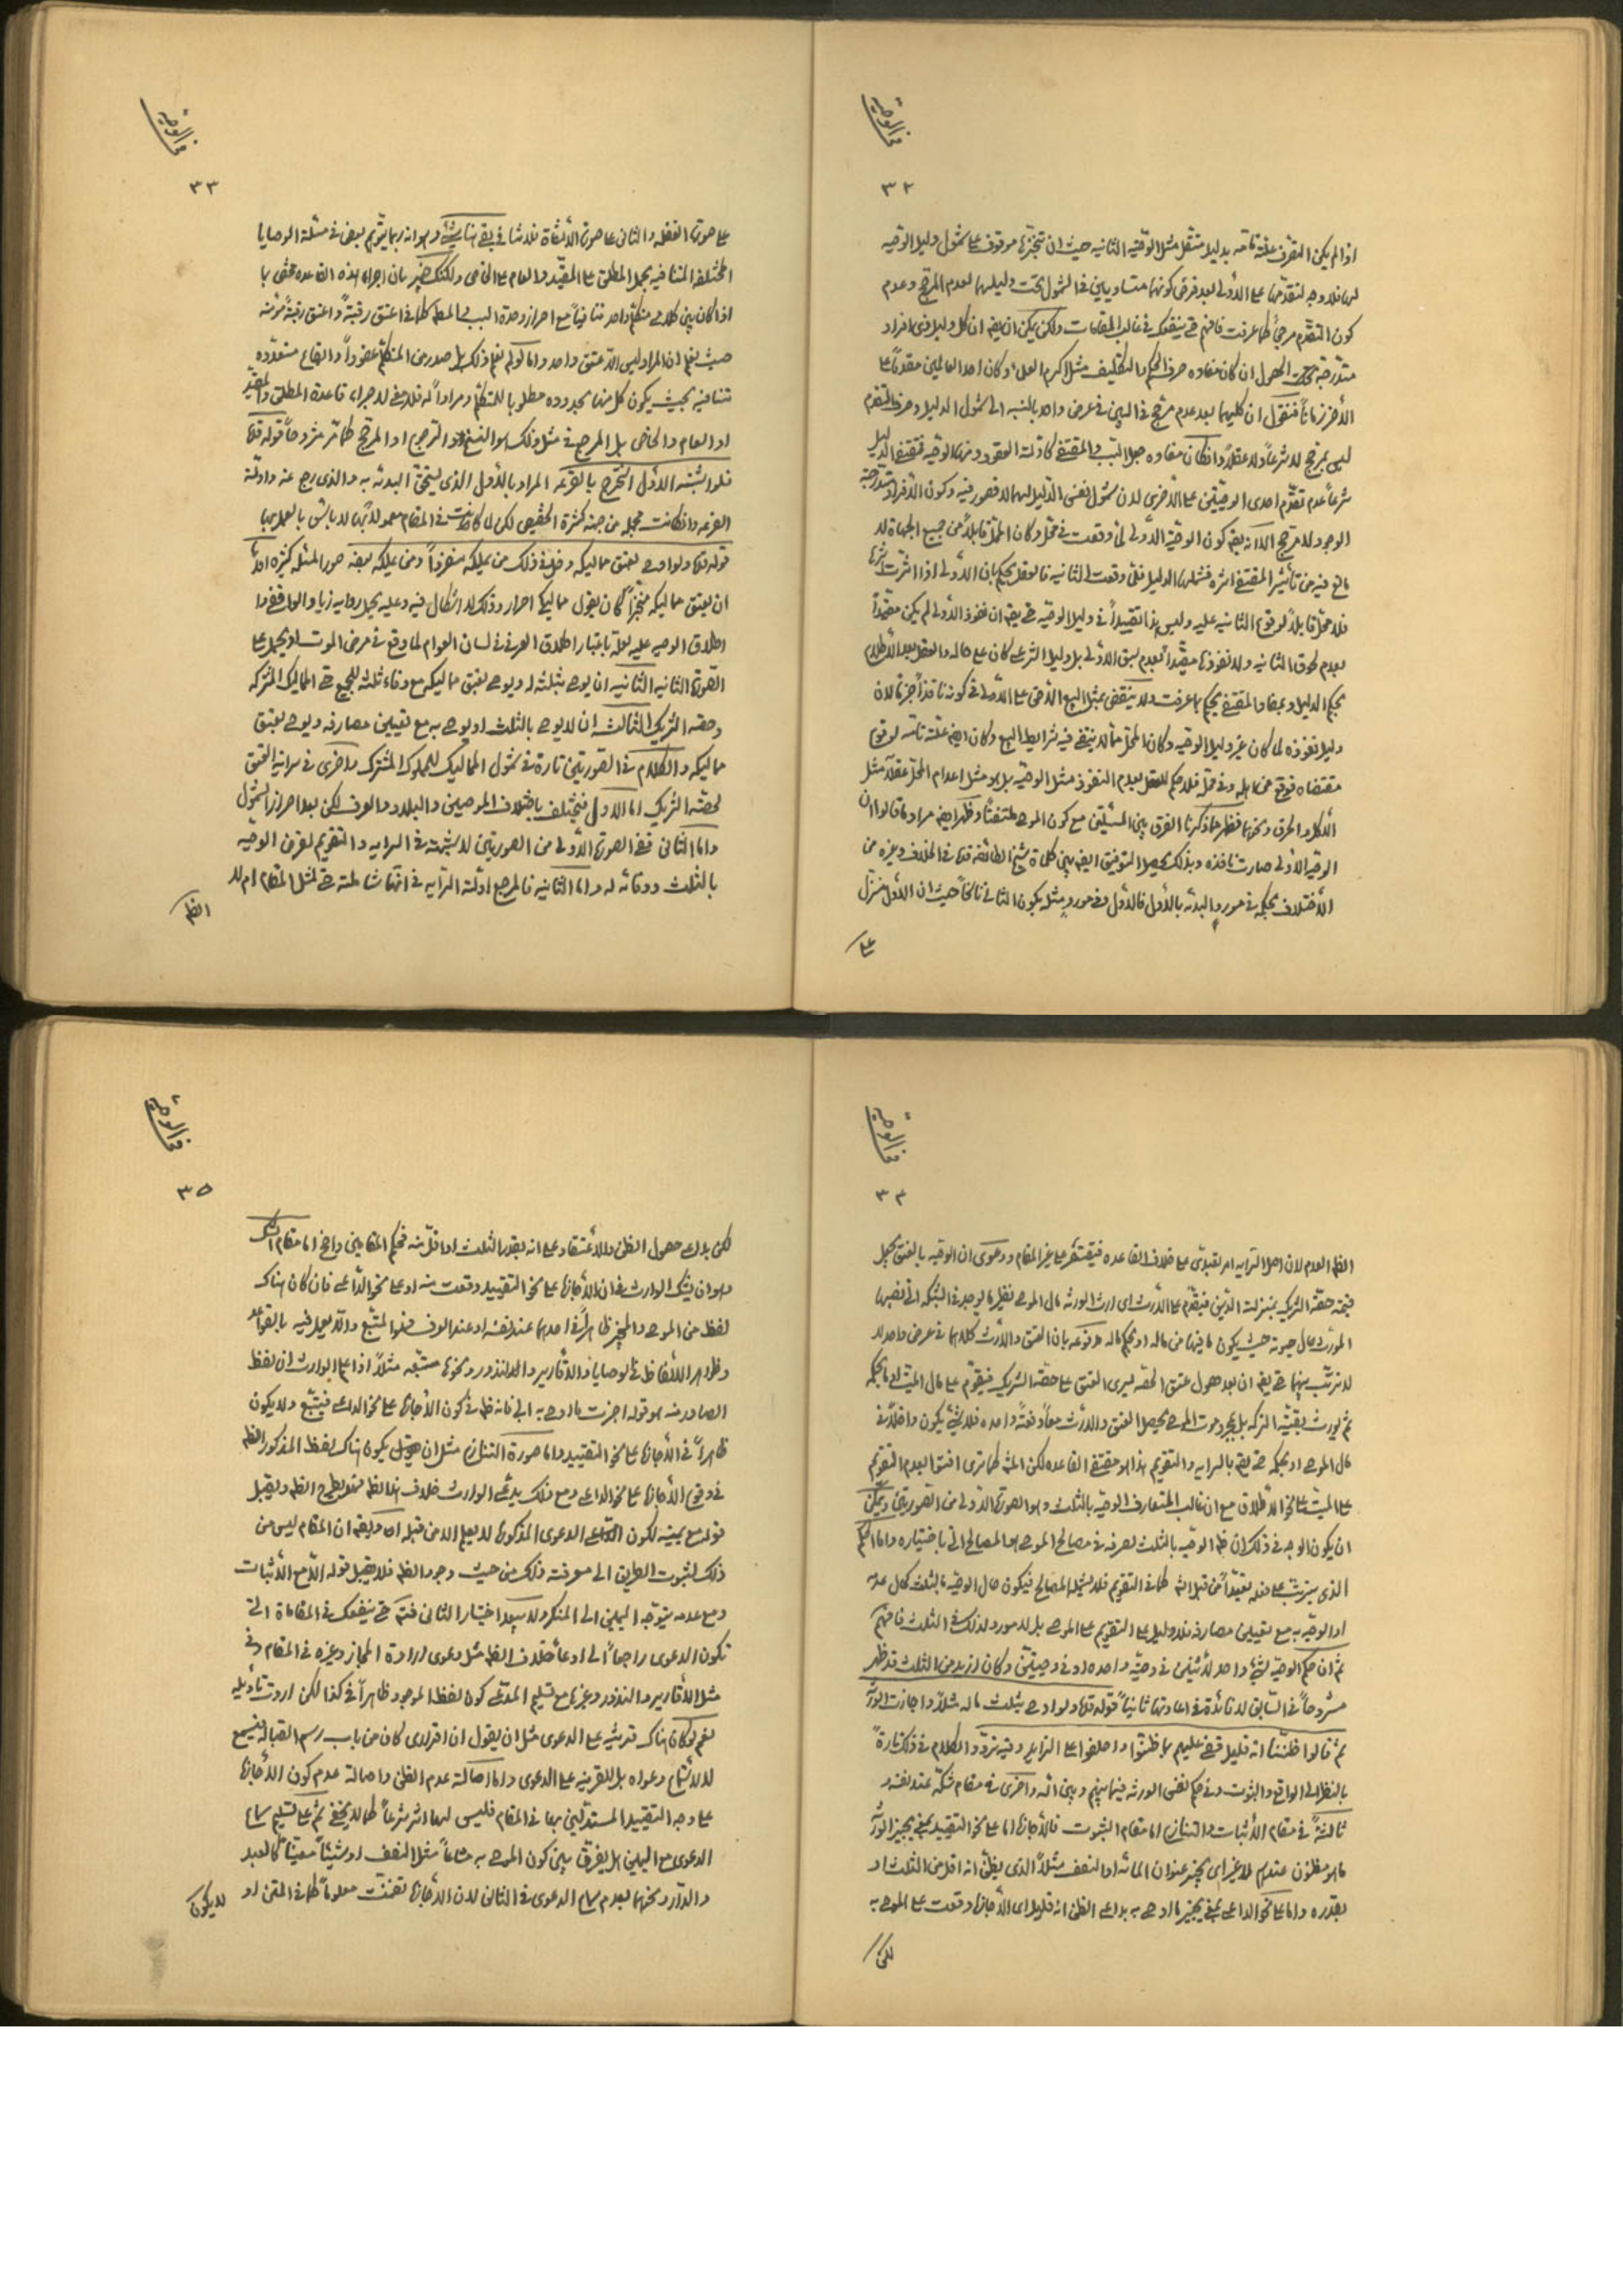 في الوصية
٣٢
اذا لم يكن التصرف علة تامة بدليل مستقل مثل الوصية الثانية حيث ان تنجزها موقوف على شمول دليل الوصية
لها فلا وجه لتقدمها على الأولى بعد فرض كونهما متساويين في الشمول تحت دليلهما لعدم المرجح وعدم
كون التقدم مرجحاً كما عرفت فافهم حتى ينفعك في غالب المقامات ولكن يمكن ان يقم ان كل دليل ذي افراد
متدرجة الحصول ان كان مفاده صرف الحكم والتكليف مثل اكرم العلماء وكان احد العالمين مقدماً على
الآخر زماناً فنقول ان كليهما بعد عدم مرجح في البين في عرض واحد بالنسبة الى شمول الدليل وصرف التقدم
ليس بمرجح لا شرعاً ولا عقلاً وان كان مفاده جعل السبب والمقتضي كادلة العقود ومنها الوصية فمقتضى الدليل
شرعاً عدم تقدم احدى الوصيتين على الاخرى لان شمول نفس الدليل لهما لا قصور فيه وكون الافراد متدرجة
الوجود لا مرجح الا ان يقم كون الوصية الأولى لما وقعت في محل وكان المحل قابلاً من جميع الجهات لا
مانع فيه من تأثير المقتضي اثره فشملها الدليل فلما وقعت الثانية فالعقل يحكم بان الأولى اذا اثرت اثرها
فلا محل قابلاً لوقوع الثانية عليه وليس هذا تقييداً في دليل الوصية حتى يقم ان نفوذ الأولى لم يكن مقيداً
بعدم لحوق الثانية ولا نفوذها مقيداً بعدم سبق الأولى بل دليل الشرعي كان على حاله والعقل بعد الاطلاع
بحكم الدليل ومفاد المقتضي يحكم بما عرفت ولا ينتقض بمثل البيع
دليل نفوذه لما كان غير دليل الوصية وكان المحل مما لا ينتفي فيه شرائط البيع وكان ايضاً علة تامة لوقوع
مقتضاه فوقع من اهله وفي محله فلا حكم للعقل بعدم النفوذ مثل الوصية بل هو مثل اعدام المحل عقلاً مثل
الأكل والحرق ونحوهما فظهر مما ذكرنا الفرق بين المسئلتين مع كون الموصي ملتفتاً وظهر ايضاً مراد ما قالوا ان
الوصية الأولى صارت نافذة وبذلك يحصل التوفيق ايضاً بين كلمات شيخ الطائفة قده في الخلاف وغيره من
الأختلاف بحكمه في مورد البدئة بالأول فالأول وفي مورد مثل يكون الثاني ناسخاً حيث ان الأول منزل
على
في الوصية
٣٣
على صورة الغفلة والثاني على صورة الالتفات فلا تنافي بقي هنا شيء وهو انه ربما يتوهم بعض في مسئلة الوصايا
المختلفة المتنافية بحمل المطلق على المقيد والعام على الخاص ولكنك خبير بان اجراء هذه القاعدة مختص بما
اذا كان بين كلامي متكلم واحد تنافياً مع احراز وحدة السبب والمطلوب كما في اعتق رقبة واعتق رقبة مؤمنة
حيث يعلم ان المراد ليس الا عتق واحد واما لو لم يعلم ذلك بل صدر من المتكلم عقوداً وايقاع متعددة
متنافية بحيث يكون كل منها بحدوده مطلوباً للمتكلم ومراداً له فلا معنى لاجراء قاعدة المطلق والمقيد
او العام والخاص بل المرجع في مثل ذلك هو النسخ والترجيح او المرجح كما مر مشروحاً قوله قده
فلو اشتبه الأول استخرج بالقرعة المراد بالأول الذي يستحق البدئة به والذي رجع عنه وادلة
القرعة وان كانت مجملة من جهة كثرة التخصيص لكن لما كانت في المقام معمولاً بها لا بأس بالعمل بها
قوله قده ولو اوصى بعتق مماليكه دخل في ذلك من يملكه منفرداً ومن يملكه بعضه صور المسئلة كثيرة اولاً
ان يعتق مماليكه منجزاً كان يقول مماليكي احرار وذلك لا اشكال فيه وعليه يحمل رواية زياد والا فقد
اطلاق الوصية عليه لعله باعتبار اطلاق العرف في لسان العوام لما وقع في مرض الموت او يحمل على
الصورة الثانية الثانية ان يوصي بثلثه له ويوصي بعتق مماليكه مع وفاء ثلثه للجميع حتى المماليك المشتركة
وحصة الشريك الثالثة ان لا يوصي بالثلث او يوصي به مع تعيين مصارفه ويوصي بعتق
مماليكه والكلام في الصورتين تارة في شمول المماليك للمملوك المشترك واخرى في سراية العتق
لحصة الشريك اما الأول فيختلف باختلاف الموصين والبلاد والعرف لكن بعد احراز الشمول
واما الثاني ففي الصورة الأولى من الصورتين لا شبهة في السراية والتقويم لفرض الوصية
بالثلث ووفائه له واما الثانية فالمرجع ادلة السراية في انها شاملة حتى لمثل المقام ام لا
الظم
في الوصية
٣٤
الظم العدم لان اصل السراية امر تعبدي على خلاف القاعدة فيقتصر على غير المقام ودعوى ان الوصية بالعتق يجعل
قيمة حصة الشريك بمنزلة الدين فيقدم على الأرث اي ارث الورثة مال الموصي نظير ما يوجد في الشبكة التي نصبها
المورث حال حيوته حيث يكون ما فيها من ماله او بحكم ماله مدفوعة بان العتق والأرث كلاهما في عرض واحد لا
لا ترتب بينهما حتى يقم ان بعد حصول عتق الحصة يسري العتق على حصة الشريك فيقوم على مال الميت او ما بحكمه
ثم يورث بقية التركة بل بمجرد موت الموصي يحصل العتق والأرث معاً دفعة واحدة فلا شيء يكون داخلاً في
مال الموصي او بحكمه حتى يقم بالسراية والتقويم هذا هو مقتضى القاعدة لكن المشه كما ترى افتوا بعدم التقويم
على الميت على نحو الاطلاق مع ان غالب المتعارف الوصية بالثلث وهو الصورة الأولى من الصورتين ويمكن
ان يكون الوجه في ذلك ان ظم الوصية بالثلث لصرفه في مصالح الموصي هو المصالح التي باختياره واما الحكم
الذي يترتب على فعله تعبداً من قبل الله كما في التقويم فلا يشمله المصالح فيكون حال الوصية بالثلث كحال عدمه
او الوصية به مع تعيين مصارفه فلا دليل على التقويم على الموصي بل لا مورد لذلك في الثلث فافهم
ثم ان حكم الوصية بشيء واحد لأثنين في وصية واحدة او في وصيتين وكان ازيد من الثلث قد ظهر
مشروحاً في السابق لا فائدة في اعادتها ثانياً قوله قده ولو اوصى بثلث ماله مثلاً واجازت الورثة
ثم قالوا ظننا انه قليل قضي عليهم بما ظنوا واحلفوا على الزايد وفيه تردد والكلام في ذلك تارة
بالنظر الى الواقع والثبوت وفي حكم نفس الورثة فيما بينهم وبين الله واخرى في مقام شكه عند نفسه و
ثالثة في مقام الأثبات والتنازع اما مقام الثبوت فالأجازة اما على نحو التقييد بمعنى يجيز الورثة
ما هو مظنون عندهم لا غير اي يجيز عنوان المائة او النصف مثلاً الذي يظن انه اقل من الثلث او
بقدره واما على نحو الداعي بمعنى يجيز ما اوصى به بداعي الظن انه قليل اي الأجازة وقعت على الموصى به
لكن
في الوصية
٣٥
لكن بداعي حصول الظن والاعتقاد على انه بقدر الثلث او اقل منه فحكم المقامين واضح اما مقام الشك
وهو ان يشك الوارث في ان الأجازة على نحو التقييد وقعت منه او على نحو الداعي فان كان هناك
لفظ من الموصي والمجيز ظاهراً في احدهما عند نفسه او عند العرف فهو المتبع والا يعمل فيه بالقواعد
وظواهر الألفاظ في الوصايا والأقارير والنذور ونحوها متبعة مثلاً اذا علم الوارث ان لفظ
الصادر منه هو قوله اجزت ما اوصى به ابي فانه ظم في كون الأجازة على نحو الداعي فيتبع ولا يكون
ظاهراً في الأجازة على نحو التقييد واما صورة التنازع مثل ان يكون هناك لفظ المذكور الظم
في وقوع الأجازة على نحو الداعي ومع ذلك يدعي الوارث خلاف الظم فهل يطرح الظم ويقبل
قوله مع يمينه لكون الدعوى المذكورة لا يعلم الا من قبله او يقم ان المقام ليس من
ذلك لثبوت الطريق الى معرفته ذلك من حيث وجود الظم فلا يقبل قوله الا مع الأثبات
ومع عدمه يتوجه اليمين الى المنكر ولا يبعد اختيار الثاني فتم حتى ينفعك في المقامات التي
تكون الدعوى راجعاً الى ادعاء خلاف الظم مثل دعوى ارادة المجاز وغيره في المقام وفي
مثل الأقارير والنذور وغيرها مع تسليم المدعي كون لفظ الموجود ظاهراً في كذا لكن اردت تأويله
نعم لو كان هناك قرينة على الدعوى مثل ان يقول ان اقراري كان من باب رسم القبالة فيسمع
لا لاستماع دعواه بل للقرينة على الدعوى واما اصالة عدم الظن واصالة عدم كون الأجازة
على وجه التقييد المستدلين بها في المقام فليس لهما اثر شرعاً كما لا يخفى ثم على تسليم سماع
الدعوى مع اليمين هل يفرق بين كون الموصى به مشاعاً مثل النصف او شيئاً معيناً كالعبد
والدار ونحوهما بعدم سماع الدعوى في الثاني لان الأجازة تضمنت معلوماً كما في المتن او
لا يكون